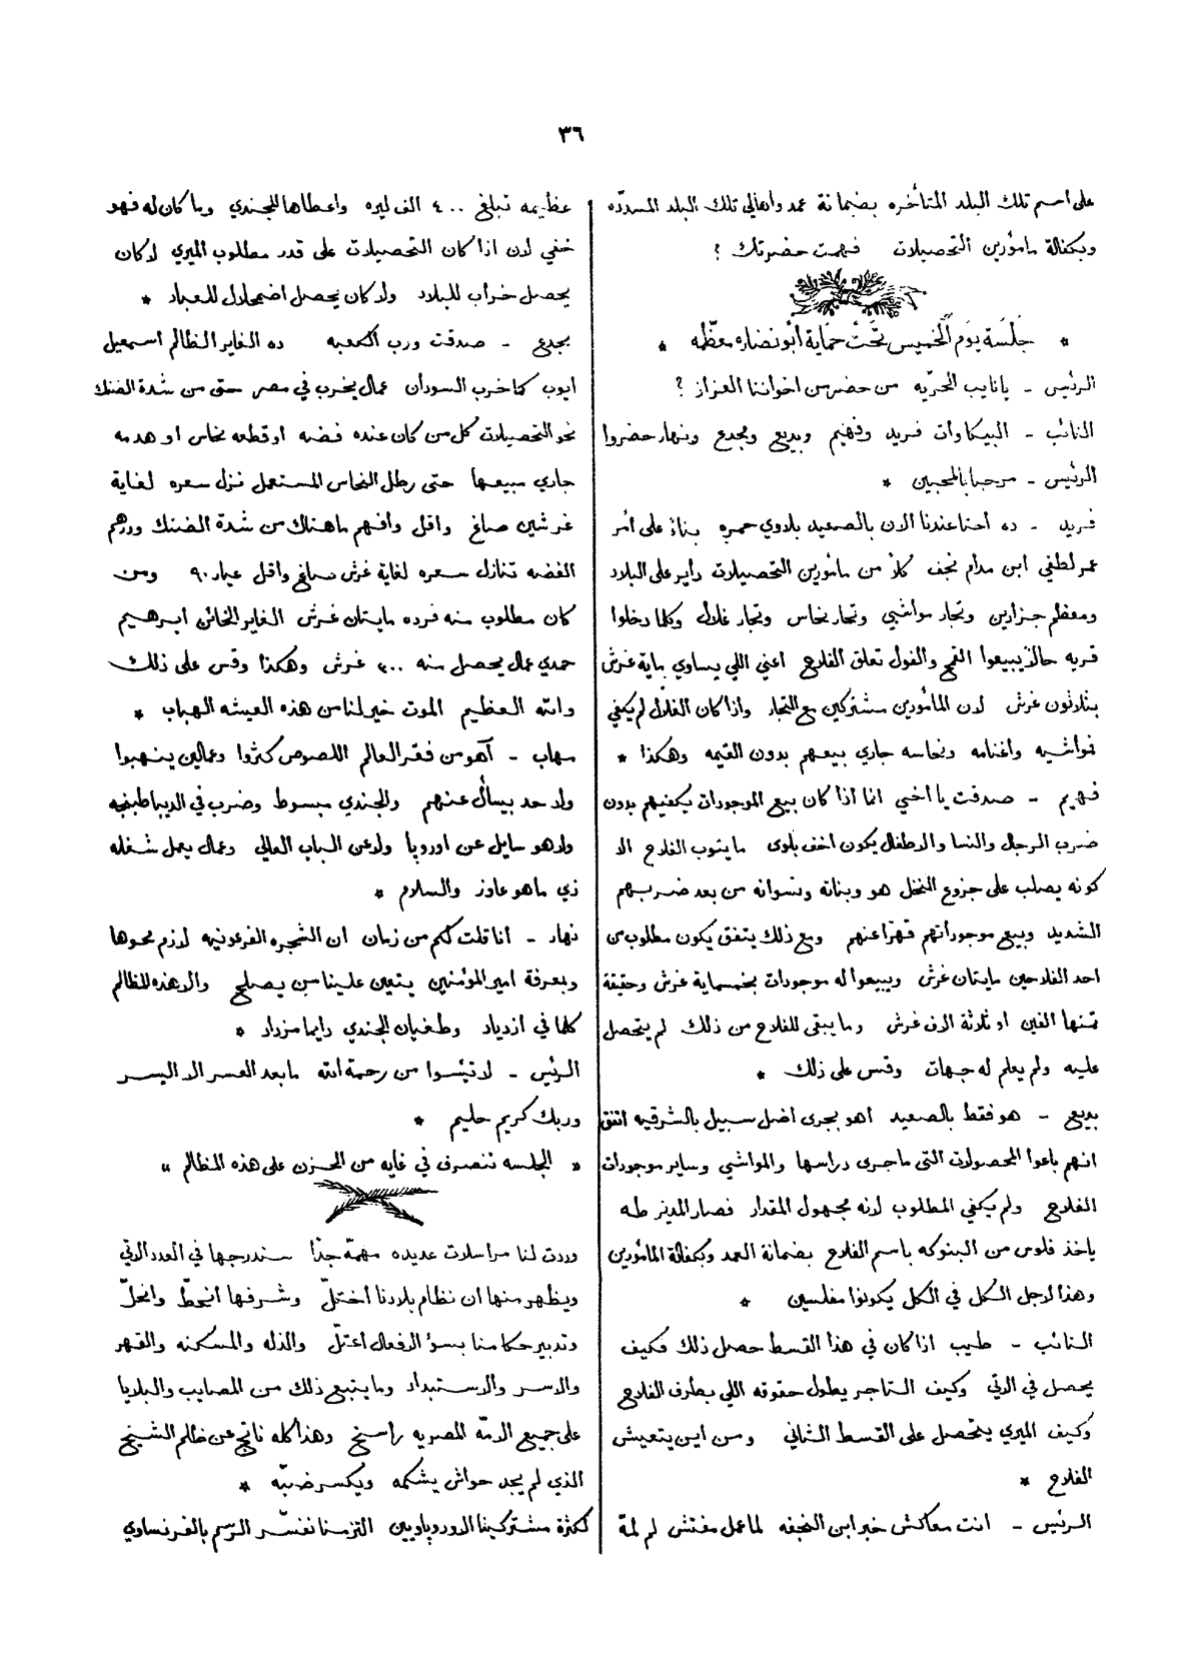 ٣٦
على اسم تلك البلد المتأخره بضمانة عمد واهالي تلك البلد المسدده
وبكفالة مامورين التحصيلات فهمت حضرتك ؟
* جلسة يوم الخميس تحت حماية أبو نضاره معظمه *
الرئيس ـ يا نايب الحريه من حضر من اخواننا العزاز ؟
النائب ـ البيكاوات فريد وفهيم وبديع ومجدع ونهار حضروا
الرئيس ـ مرحبا بالمحبين *
فريد ـ ده احنا عندنا الان بالصعيد بلاوي حمره بناءً على أمر
عمر لطفي ابن مدام نجف كلاً من مأمورين التحصيلات داير على البلاد
ومعظم جزارين وتجار مواشي وتجار نحاس وتجار غلال وكلما دخلوا
قريه حالا يبيعوا القمح والفول تعلق الفلاح اعني اللي يساوي ماية غرش
بثلاثون غرش لان المأمورين مشتركين مع التجار واذا كان الغلال لم يكفي
فمواشيه واغنامه ونحاسه جاري بيعهم بدون القيمه وهكذا *
فهيم ـ صدقت يا اخي انما اذا كان بيع الموجودات يكفيهم بدون
ضرب الرجال والنسا والاطفال يكون اخف بلوى ما ينوب الفلاح الا
كونه يصلب على جزوع النخل هو وبناته ونسوانه من بعد ضربهم
الشديد وبيع موجوداتهم قهرًا عنهم ومع ذلك يتفق يكون مطلوب من
احد الفلاحين مايتان غرش ويبيعوا له موجودات بخمسماية غرش وحقيقة
ثمنها الفين او ثلاثة الاف غرش وما يبقى للفلاح من ذلك لم يتحصل
عليه ولم يعلم له جهات وقس على ذلك *
بديع ـ هو فقط بالصعيد اهو بجرى اضل سبيل بالشرقيه اتفق
انهم باعوا المحصولات التى ماجرى دراسها والمواشي وساير موجودات
الفلاح ولم يكفي المطلوب لانه مجهول المقدار فصار المدير طه
ياخذ فلوس من البنوكه باسم الفلاح بضمانة العمد وبكفالة المأمورين
وهذا لاجل الكل في الكل يكونوا مفلسين *
النائب ـ طيب اذا كان في هذا القسط حصل ذلك فكيف
يحصل في الاتي وكيف التاجر يطول حقوقه اللي بطرف الفلاح
وكيف الميري يتحصل على القسط الثاني ومن اين يتعيش
الفلاح *
الرئيس ـ انت معاكش خبر ابن النجفه لما عمل مفتش لم لمة
عظيمه تبلغ ٤٠٠ الف ليره واعطاها للجندي وما كان له فهو
خفي لان اذا كان التحصيلات على قدر مطلوب الميري لا كان
يحصل خراب للبلاد ولا كان يحصل اضمحلال للعباد *
مجدع ـ صدقت ورب الكعبه ده الغاير الظالم اسمعيل
ايوب كما خرب السودان عمال يخرب في مصر حتى من شدة الضنك
نحو التحصيلات كل من كان عنده فضه او قطعه نحاس او هدمه
جاري مبيعها حتى رطل النحاس المستعمل نزل سعره لغاية
غرشين صاغ واقل وافهم ما هنالك من شدة الضنك ودرهم
الفضه تنازل سعره لغاية غرش صاغ واقل عيار ٩٠ ومن
كان مطلوب منه فرده مايتان غرش الغاير الخائن ابرهيم
حمدي عمال يحصل منه ٣٠٠ غرش وهكذا وقس على ذلك
والله العظيم الموت خير لنا من هذه العيشه الهباب *
مهاب ـ آهو من فقر العالم اللصوص كثروا وعمالين ينهبوا
ولا حد بيسأل عنهم والجندي مبسوط وضرب في الديباطبنجه
ولا هو سايل عن اوروبا ولا عن الباب العالي وعمال يعمل شغله
زي ما هو عاوز والسلام *
نهار ـ انا قلت لكم من زمان ان الشجره الفرعونيه لازم محوها
وبعرفة امير المؤمنين يتعين علينا من يصلح والا هذه المظالم
كلما في ازدياد وطغيان الجندي دايما مزداد *
الرئيس ـ لا تيئسوا من رحمة الله ما بعد العسر الا اليسر
وربك كريم حليم *
* الجلسه تنصرف في غايه من الحزن على هذه المظالم "
وردت لنا مراسلات عديده مهمة جدًا سندرجها في العدد الاتي
ويظهر منها ان نظام بلادنا اختلّ وشرفها انحطّ وانحلّ
وتدبير حكامنا بسؤ الافعال اعتلّ والذله والمسكنه والقهر
والاسر والاستبداد وما يتبع ذلك من المصايب والبلايا
على جميع الامّة المصريه راسخ وهذا كله ناتج عن ظالم الشيخ
الذي لم يجد حواش يشكمه ويكسر ضبّه *
لكثرة مشتركينا الاوروپاويين التزمنا نفسّر الرسم بالفرنساوي